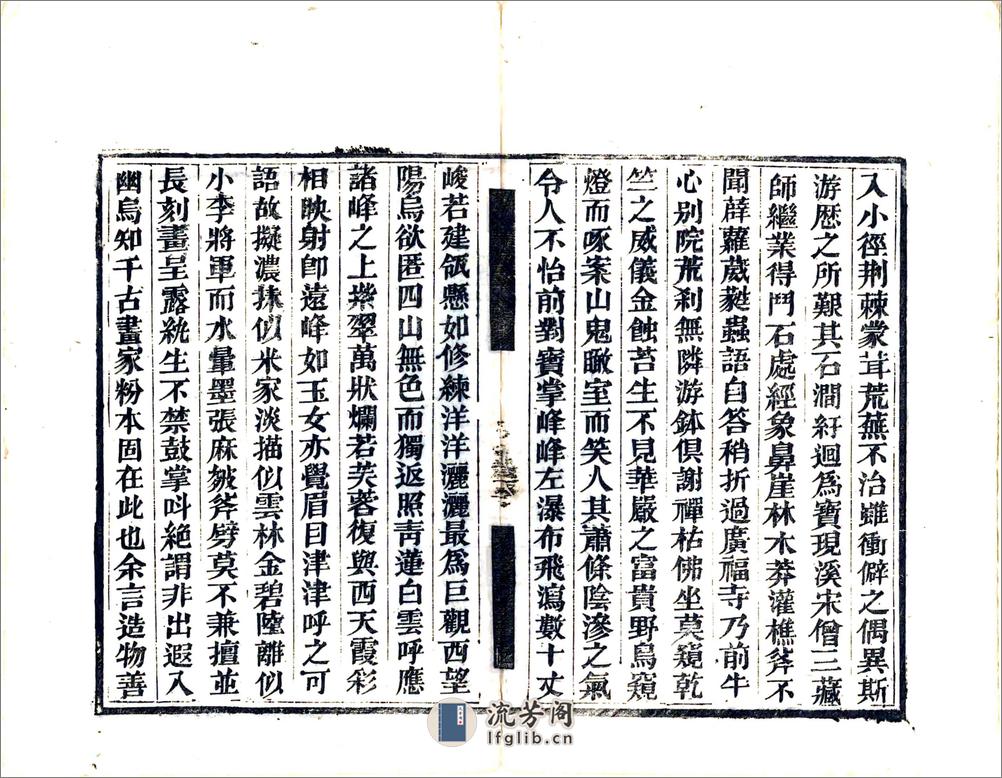 入小徑荆棘蒙茸荒蕪不治雖衝僻之偶異斯
游歷之所艱其石澗紆迴爲寶現溪宋僧三藏
師繼業得鬥石處經象鼻崖林木莽灌樵斧不
聞薜蘿葳蕤蟲語自答稍折過廣福寺乃前牛
心別院荒刹無隣游鉢俱謝禪枯佛坐莫窺乾
竺之威儀金蝕苔生不見華嚴之富貴野鳥窺
燈而啄案山鬼瞰室而笑人其蕭條陰滲之氣
令人不怡前對寶掌峰峰左瀑布飛瀉數十丈
峻若建瓴懸如修練洋洋灑灑最爲巨觀西望
陽烏欲匿四山無色而獨返照靑蓮白雲呼應
諸峰之上紫翠萬狀爛若芙蓉復與西天霞彩
相映射卽遠峰如玉女亦覺眉目津津呼之可
語故擬濃抹似米家淡描似雲林金碧陸離似
小李將軍而水暈墨張麻皴斧劈莫不兼擅並
長刻畫呈露統生不禁鼓掌呌絶謂非出遐入
幽烏知千古畫家粉本固在此也余言造物善
流芳阁
lfglib.cn